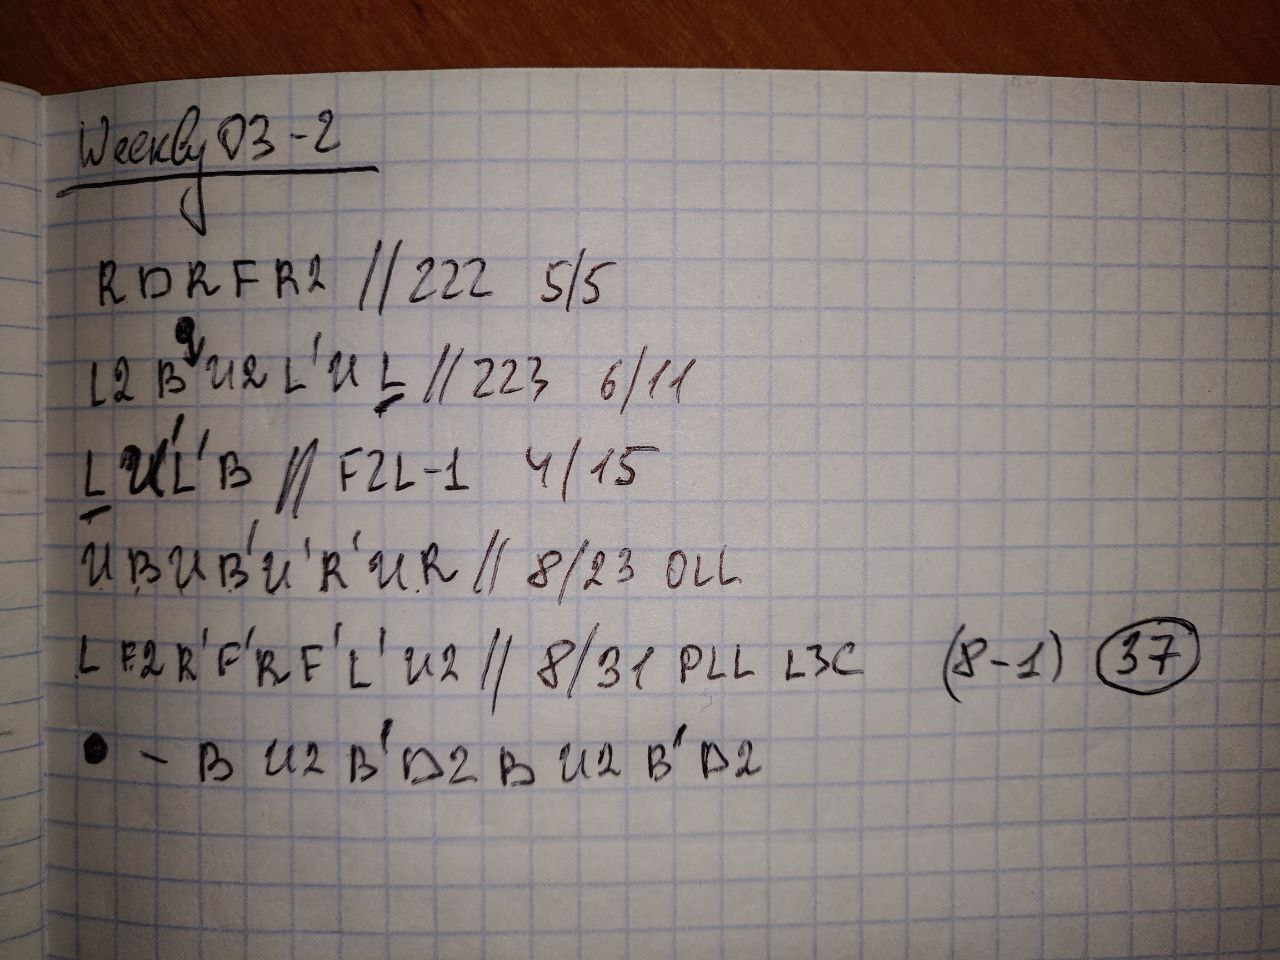 Weekly 03-2
R D R F R2 // 222 5/5
L2 B U2 L' U L // 223 6/11
L U' L' B // F2L-1 4/15
U B U B' U' R' U R // 8/23 OLL
L F2 R' F' R F' L' U2 // 8/31 PLL L3C (8-1) 37
● - B U2 B' D2 B U2 B' D2